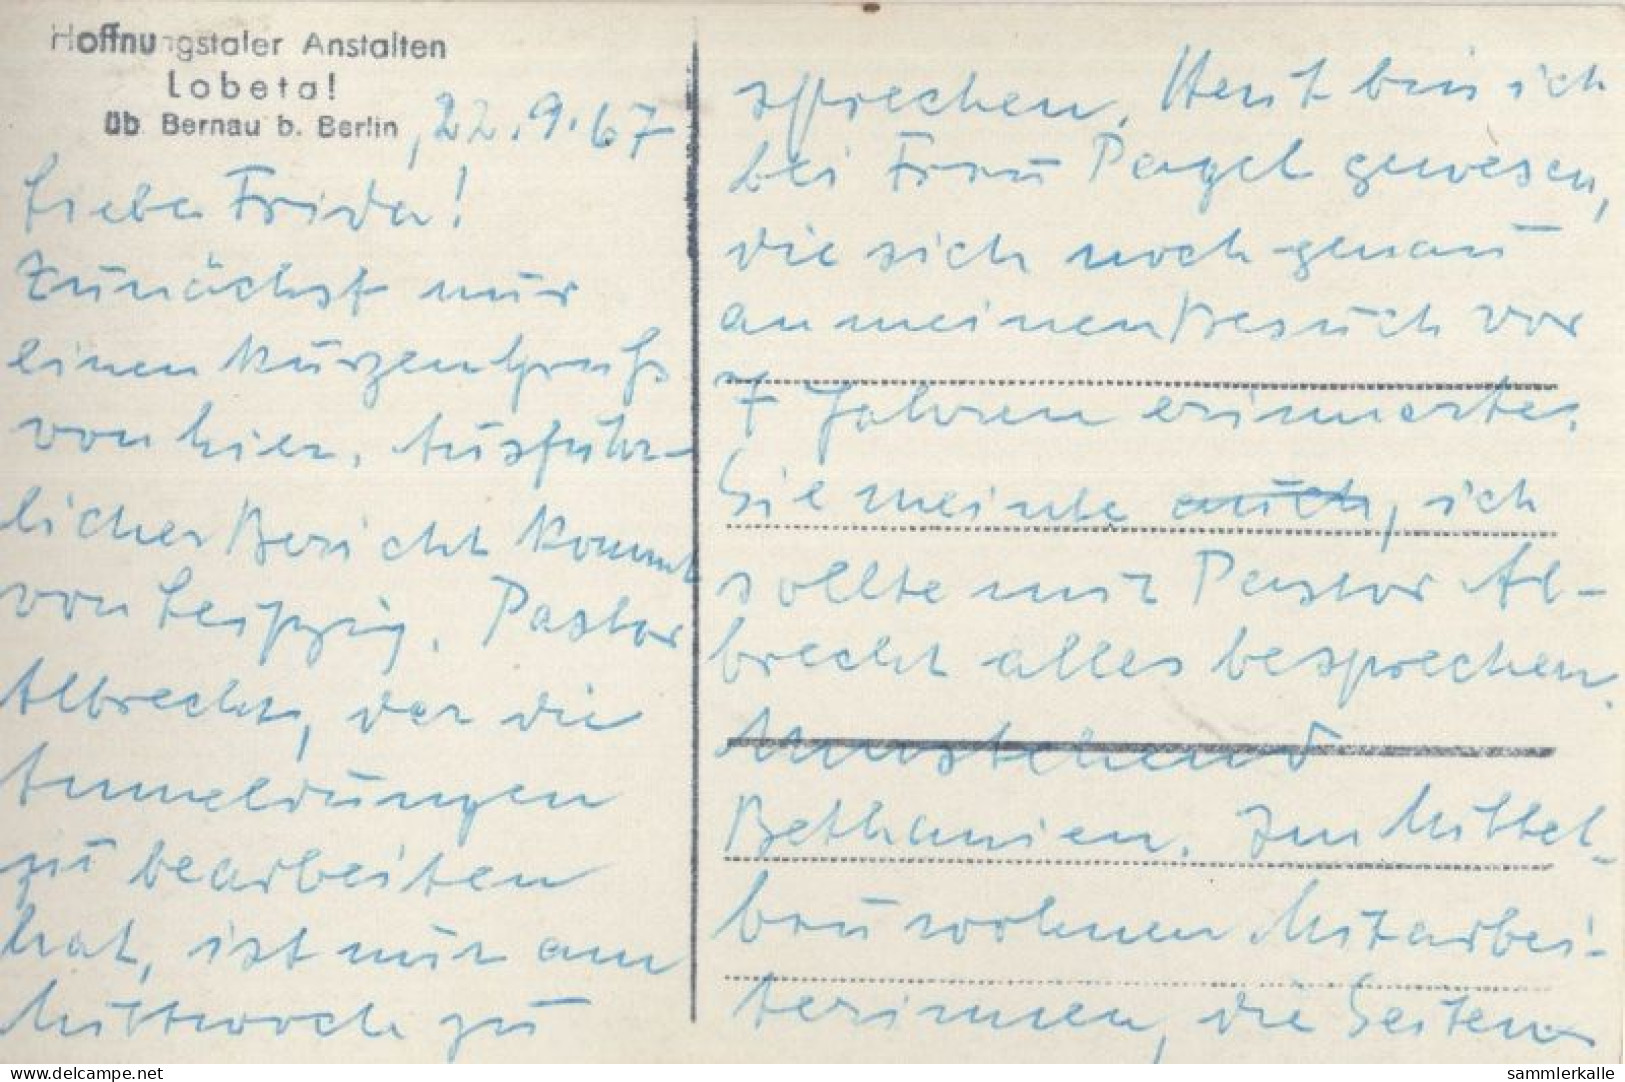 Hoffnungstaler Anstalten
Lobetal
üb Bernau b. Berlin, 22.9.67
Liebe Frida!
Zunächst nur
einen kurzen Gruß
von hier. Ausführ-
licher Bericht kommt
von Leipzig. Pastor
Albrecht, der die
Anmeldungen
zu bearbeiten
hat, ist nur am
Mittwoch zu
sprechen. Heut bin ich
bei Frau Pagel gewesen,
die sich noch genau
an meinen Besuch vor
7 Jahren erinnerte.
Sie meinte auch, ich
sollte mit Pastor Al-
brecht alles besprechen.
Umstehend
Bethanien. Im Mittel-
bau wohnen Mitarbei-
terinnen, die Seiten
delcampe.net
sammlerkalle